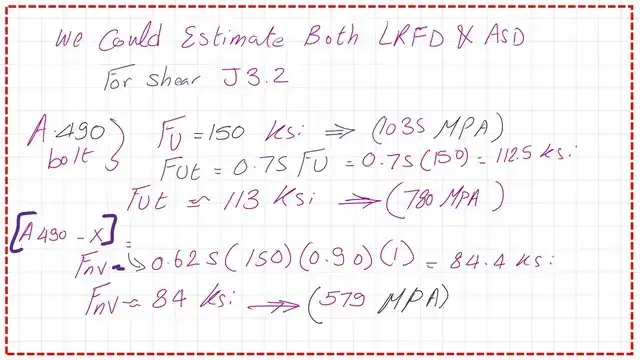 We Could Estimate Both LRFD & ASD
For shear J3.2
A.490 bolt } FU = 150 ksi ⇒ (1035 MPA)
FUt = 0.75 FU = 0.75(150) = 112.5 ksi
FUt ≈ 113 ksi ⇒ (780 MPA)
[A490-X] =
Fnv ≈> 0.625(150)(0.90)(1) = 84.4 ksi
Fnv ≈ 84 ksi ⇒ (579 MPA)